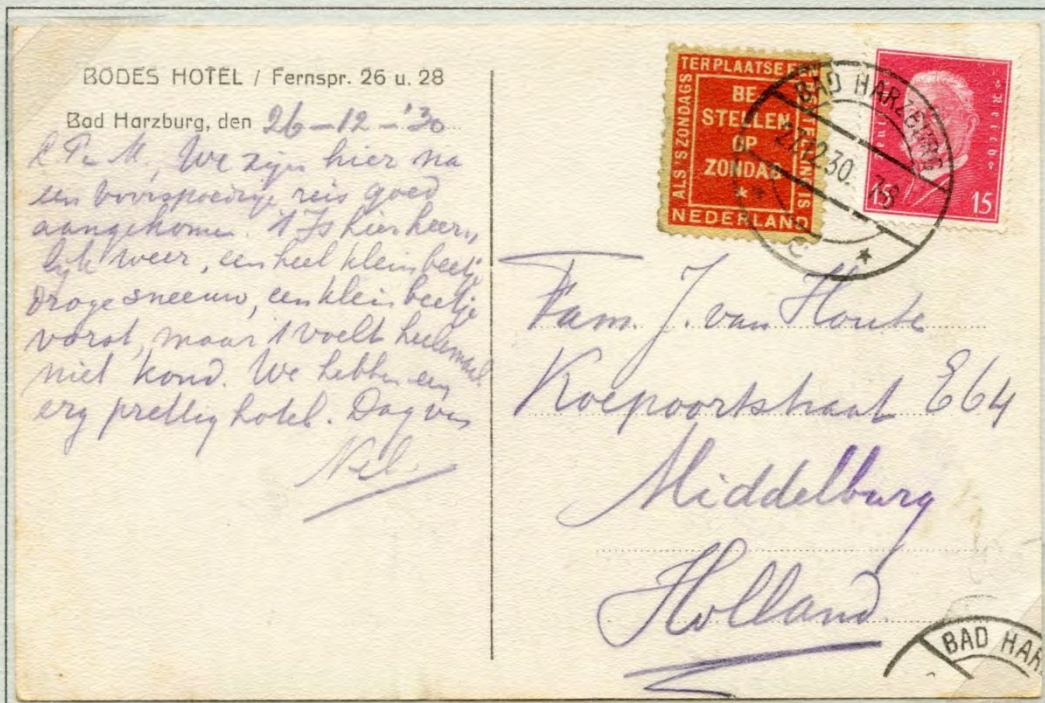 BODES HOTEL / Fernspr. 26 u. 28
Bad Harzburg, den 26-12-'30
L P. M, We zijn hier na
een voorspoedige reis goed
aangekomen. 't Is hier heer„
lijk weer, een heel klein beetje
droge sneeuw, een klein beetje
vorst, maar 't voelt heelemaal
niet koud. We hebben een
erg prettig hotel. Dag van
Nel
ALS'S ZONDAGS TER PLAATSE EEN BESTELLING IS
BE
STELLEN
OP
ZONDAG
NEDERLAND
BAD HARZBURG
27.12.30. 7-8
c
Reich
15
Fam. J. van Houte
Koepoortstraat E64
Middelburg
Holland
BAD HAR